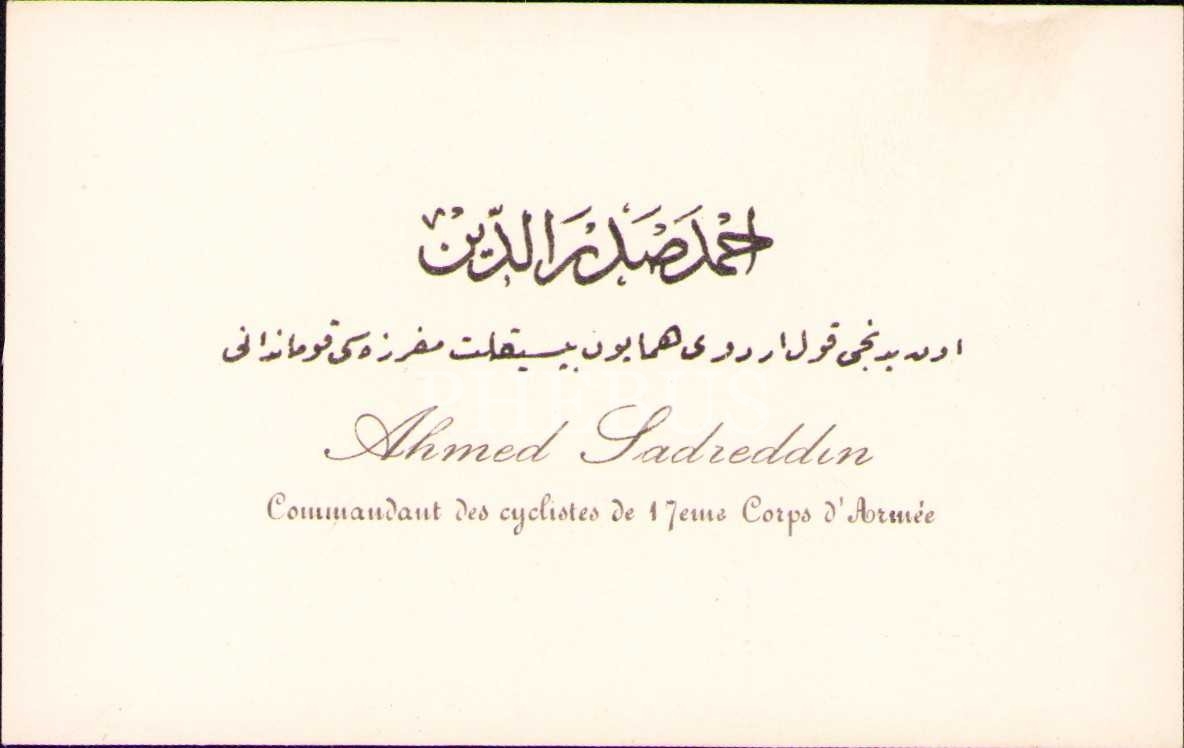 احمد صدر الدّين
اون يدنجى قول اردوى همايون بيسيقلت مفرزه‌سى قوماندانى
PHEBUS
Ahmed Sadreddin
Commandant des cyclistes de 17eme Corps d'Armée